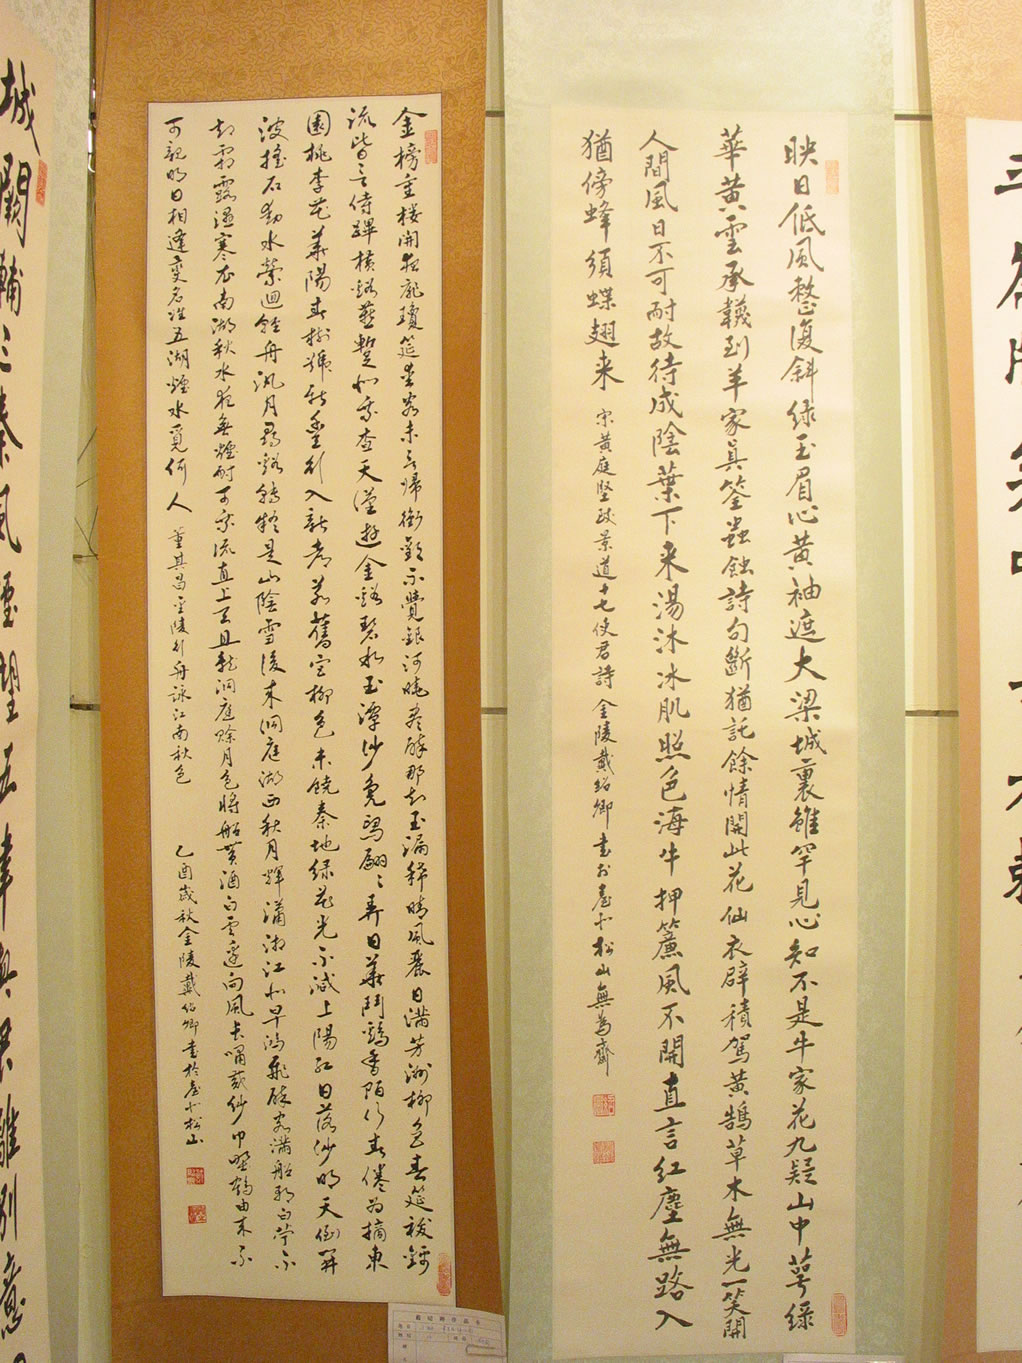 映日低風整復斜綠玉眉心黃袖遮大梁城裏雖罕見心知不是牛家花九疑山中萼綠
華黃雲承韈到羊家真筌蟲蝕詩句斷猶託餘情開此花仙衣襞積駕黃鵠草木無光一笑開
人間風日不可耐故待成陰葉下來湯沐冰肌照色海牛押簾風不開直言紅塵無路入
猶傍蜂須蝶翅來 宋黃庭堅 景道十七使君詩 金陵戴紹卿書於臺北松山無為齋
金榜重樓開夜扉瓊筵愛客未言歸銜歡不覺銀河曉盡醉那知玉漏稀晴風麗日滿芳洲柳色春筵祓錦
流皆言侍蹕橫谿 暫似乘查天漢遊金谿碧水玉潭沙鳧舄翩翩弄日華鬥雞香陌行春倦為摘東
園桃李花華陽春樹號新豐行入新都若舊宮柳色未饒秦地綠花光不減上陽紅日落沙明天倒開
波搖石動水縈迴輕舟汎月尋谿轉疑是山陰雪後來洞庭湖西秋月輝瀟湘江北早鴻飛醉客滿船歌白苧不
知霜露濕寒衣南湖秋水夜無煙耐可乘流直上天且就洞庭賒月色將船買酒白雲邊向風長嘯戴紗巾野鶴由來不
可親明日相逢變名姓五湖煙水覓何人 董其昌 金陵 舟詠江南秋色 乙酉歲秋金陵戴紹卿書於臺北松山
城闕輔三秦風煙望五津與君離別意